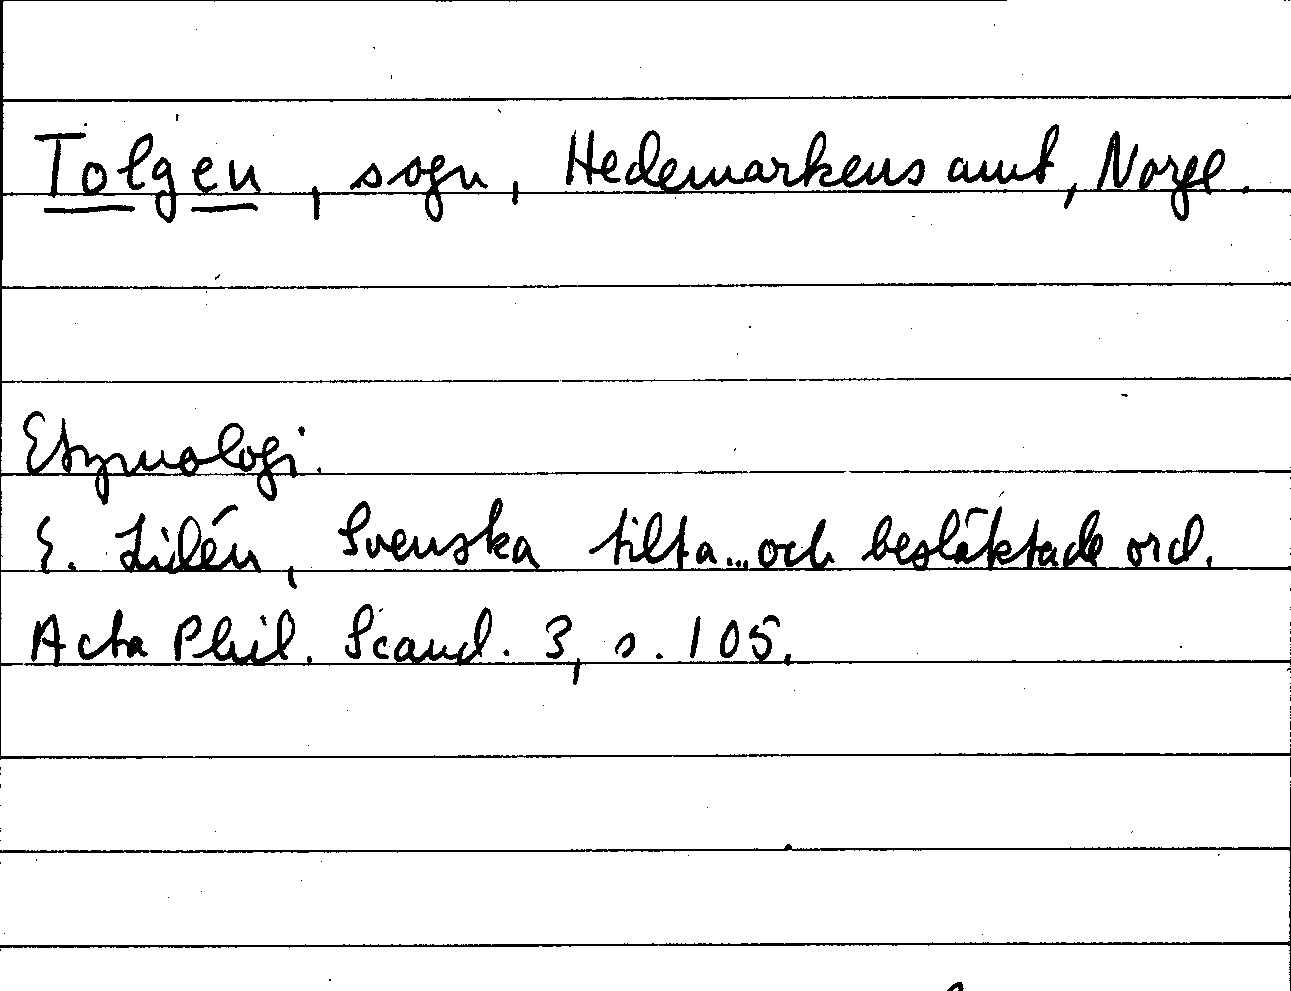 Tolgen, sogn, Hedemarkens amt, Norge.
Etymologi.
E. Lidén, Svenska tilta... och besläktade ord.
Acta Phil. Scand. 3, s. 105.